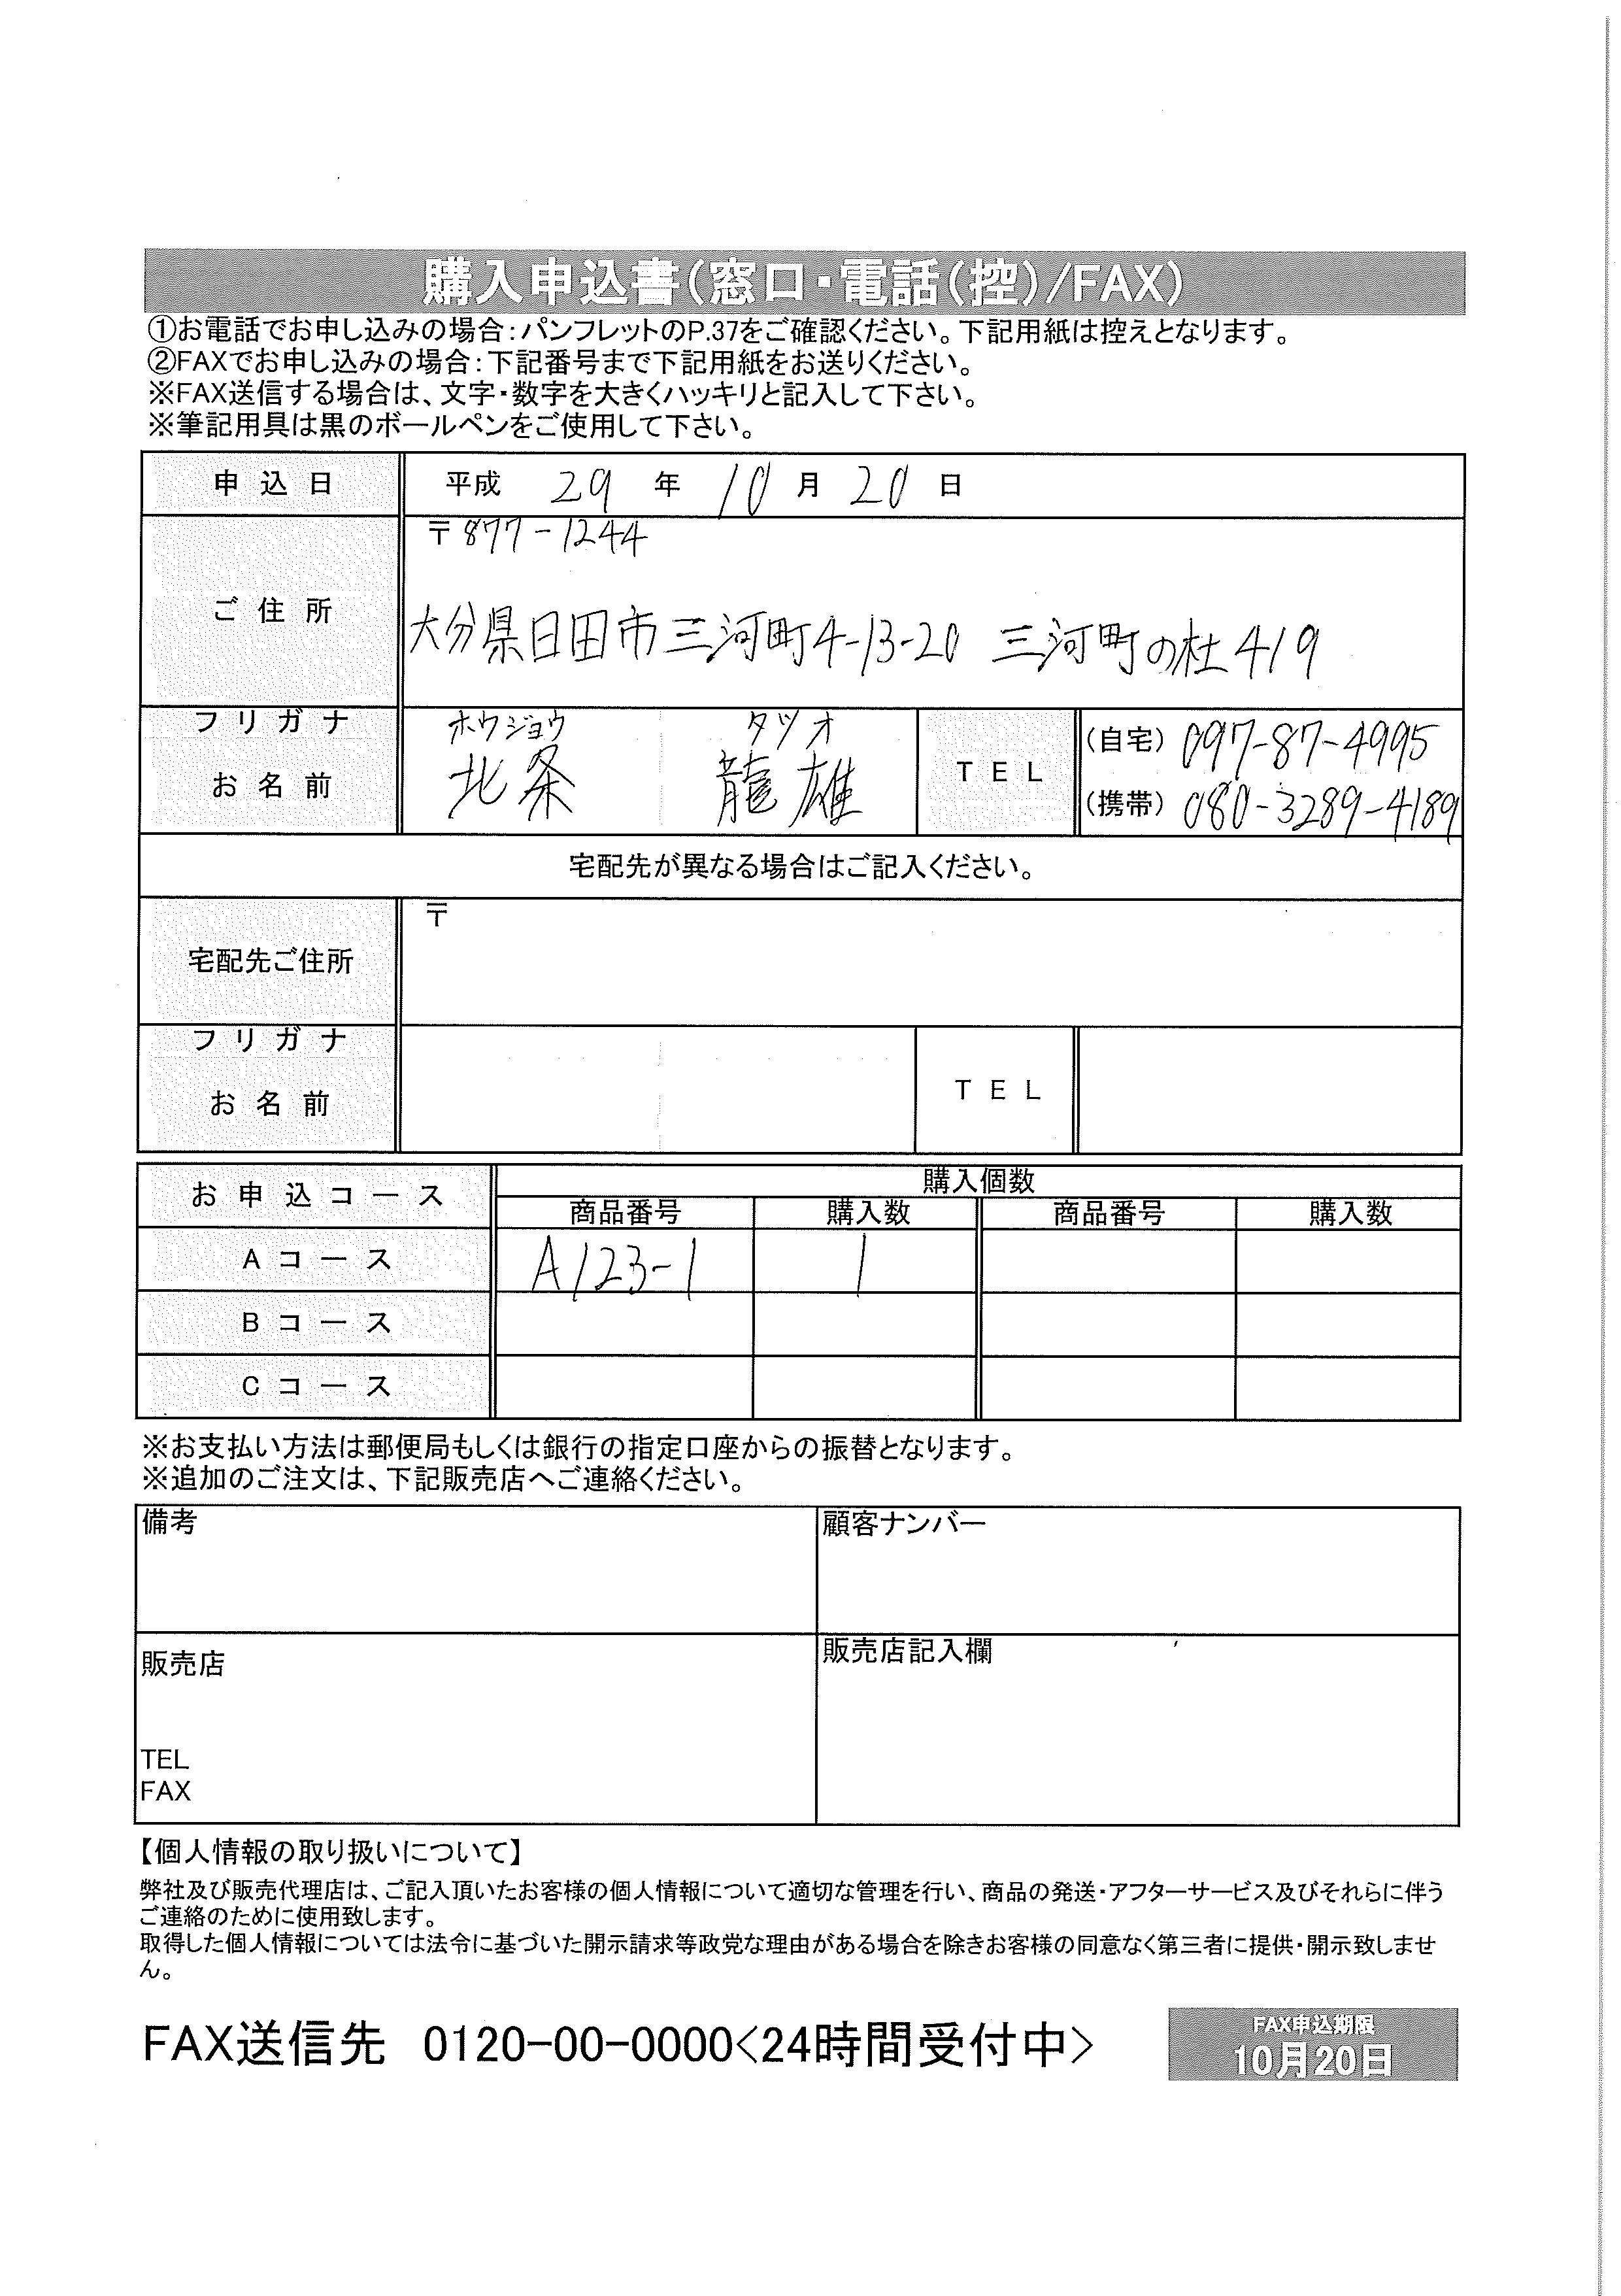 購入申込書(窓口・電話(控)/FAX)
①お電話でお申し込みの場合:パンフレットのP.37をご確認ください。下記用紙は控えとなります。
②FAXでお申し込みの場合:下記番号まで下記用紙をお送りください。
※FAX送信する場合は、文字・数字を大きくハッキリと記入して下さい。
※筆記用具は黒のボールペンをご使用して下さい。
申込日 平成 29 年 10 月 20 日
ご住所 〒877-1244
大分県日田市三河町4-13-20 三河町の杜419
フリガナ ホウジョウ タツオ
お名前 北条 龍雄
TEL (自宅) 097-87-4995
(携帯) 080-3289-4189
宅配先が異なる場合はご記入ください。
宅配先ご住所 〒
フリガナ
お名前 TEL
お申込コース 購入個数
商品番号 購入数 商品番号 購入数
Aコース A123-1 1
Bコース
Cコース
※お支払い方法は郵便局もしくは銀行の指定口座からの振替となります。
※追加のご注文は、下記販売店へご連絡ください。
備考 顧客ナンバー
販売店 販売店記入欄
TEL
FAX
【個人情報の取り扱いについて】
弊社及び販売代理店は、ご記入頂いたお客様の個人情報について適切な管理を行い、商品の発送・アフターサービス及びそれらに伴う
ご連絡のために使用致します。
取得した個人情報については法令に基づいた開示請求等政党な理由がある場合を除きお客様の同意なく第三者に提供・開示致しませ
ん。
FAX送信先 0120-00-0000<24時間受付中>
FAX申込期限
10月20日